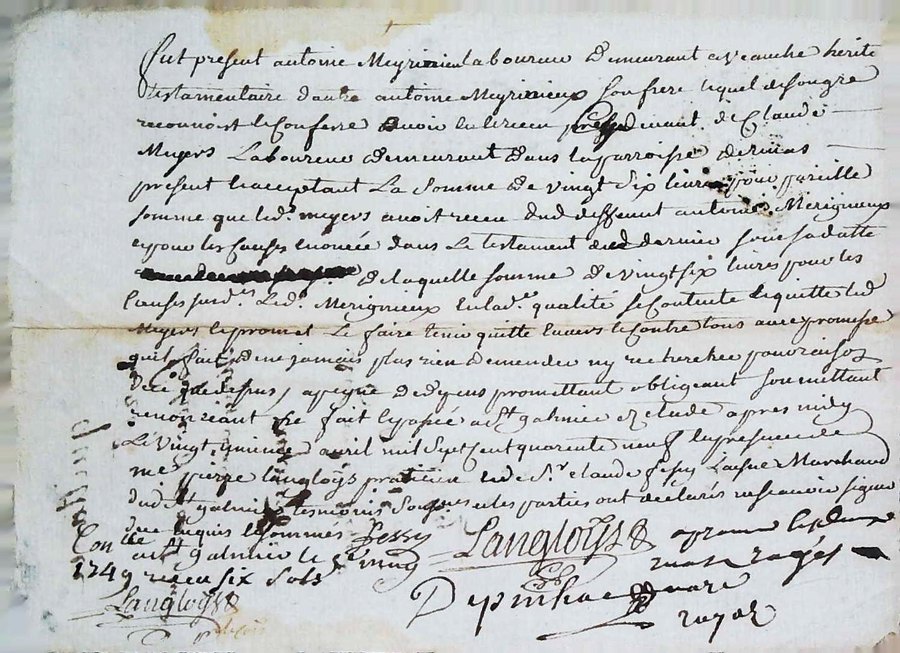 fut present antoine Meyrinieu laboureur demeurant a veauche herite
testamentaire dautre antoine Meyrinieux son frere lequel de son gre
reconnoist et confesse avoir eu et receu presentement de Claude
Meyers Laboureur demeurant dans la parroisse de rivas
present et acceptant La somme de vingt six livres pour pareille
somme que led.^t meyers avoit receu dud deffunt antoine Merignieux
et pour les causes enoncée dans Le testament dud dernier sous sa datte
de laquelle somme de vingt six livres pour les
causes susd.^es Led.^t Merignieux en lad.^e qualité se contente et quitte led
Meyers et promet Le faire tenir quitte envers et contre tous avec promesse
quil fait de ne jamais plus rien demender ny rechercher pour raison
de ce que dessus, a peyne de depens promettant obligeant soumettant
renonceant &e fait et passé a S^t galmier estude apres midy
Le vingt quinze avril mil sept cent quarente neuf en presence de
me pierre Langloÿs praticien et de S^r claude fessy Laisné Marchand
dud S^t galmier tesmoins soussignes et les parties ont déclarés ne scavoir signer
de ce enquis et sommés fessy
Langloÿs
Con^lle a S^t galmier le
1749 receu six sols
Langloÿs
approuvé les deux
mots rayés
rayés